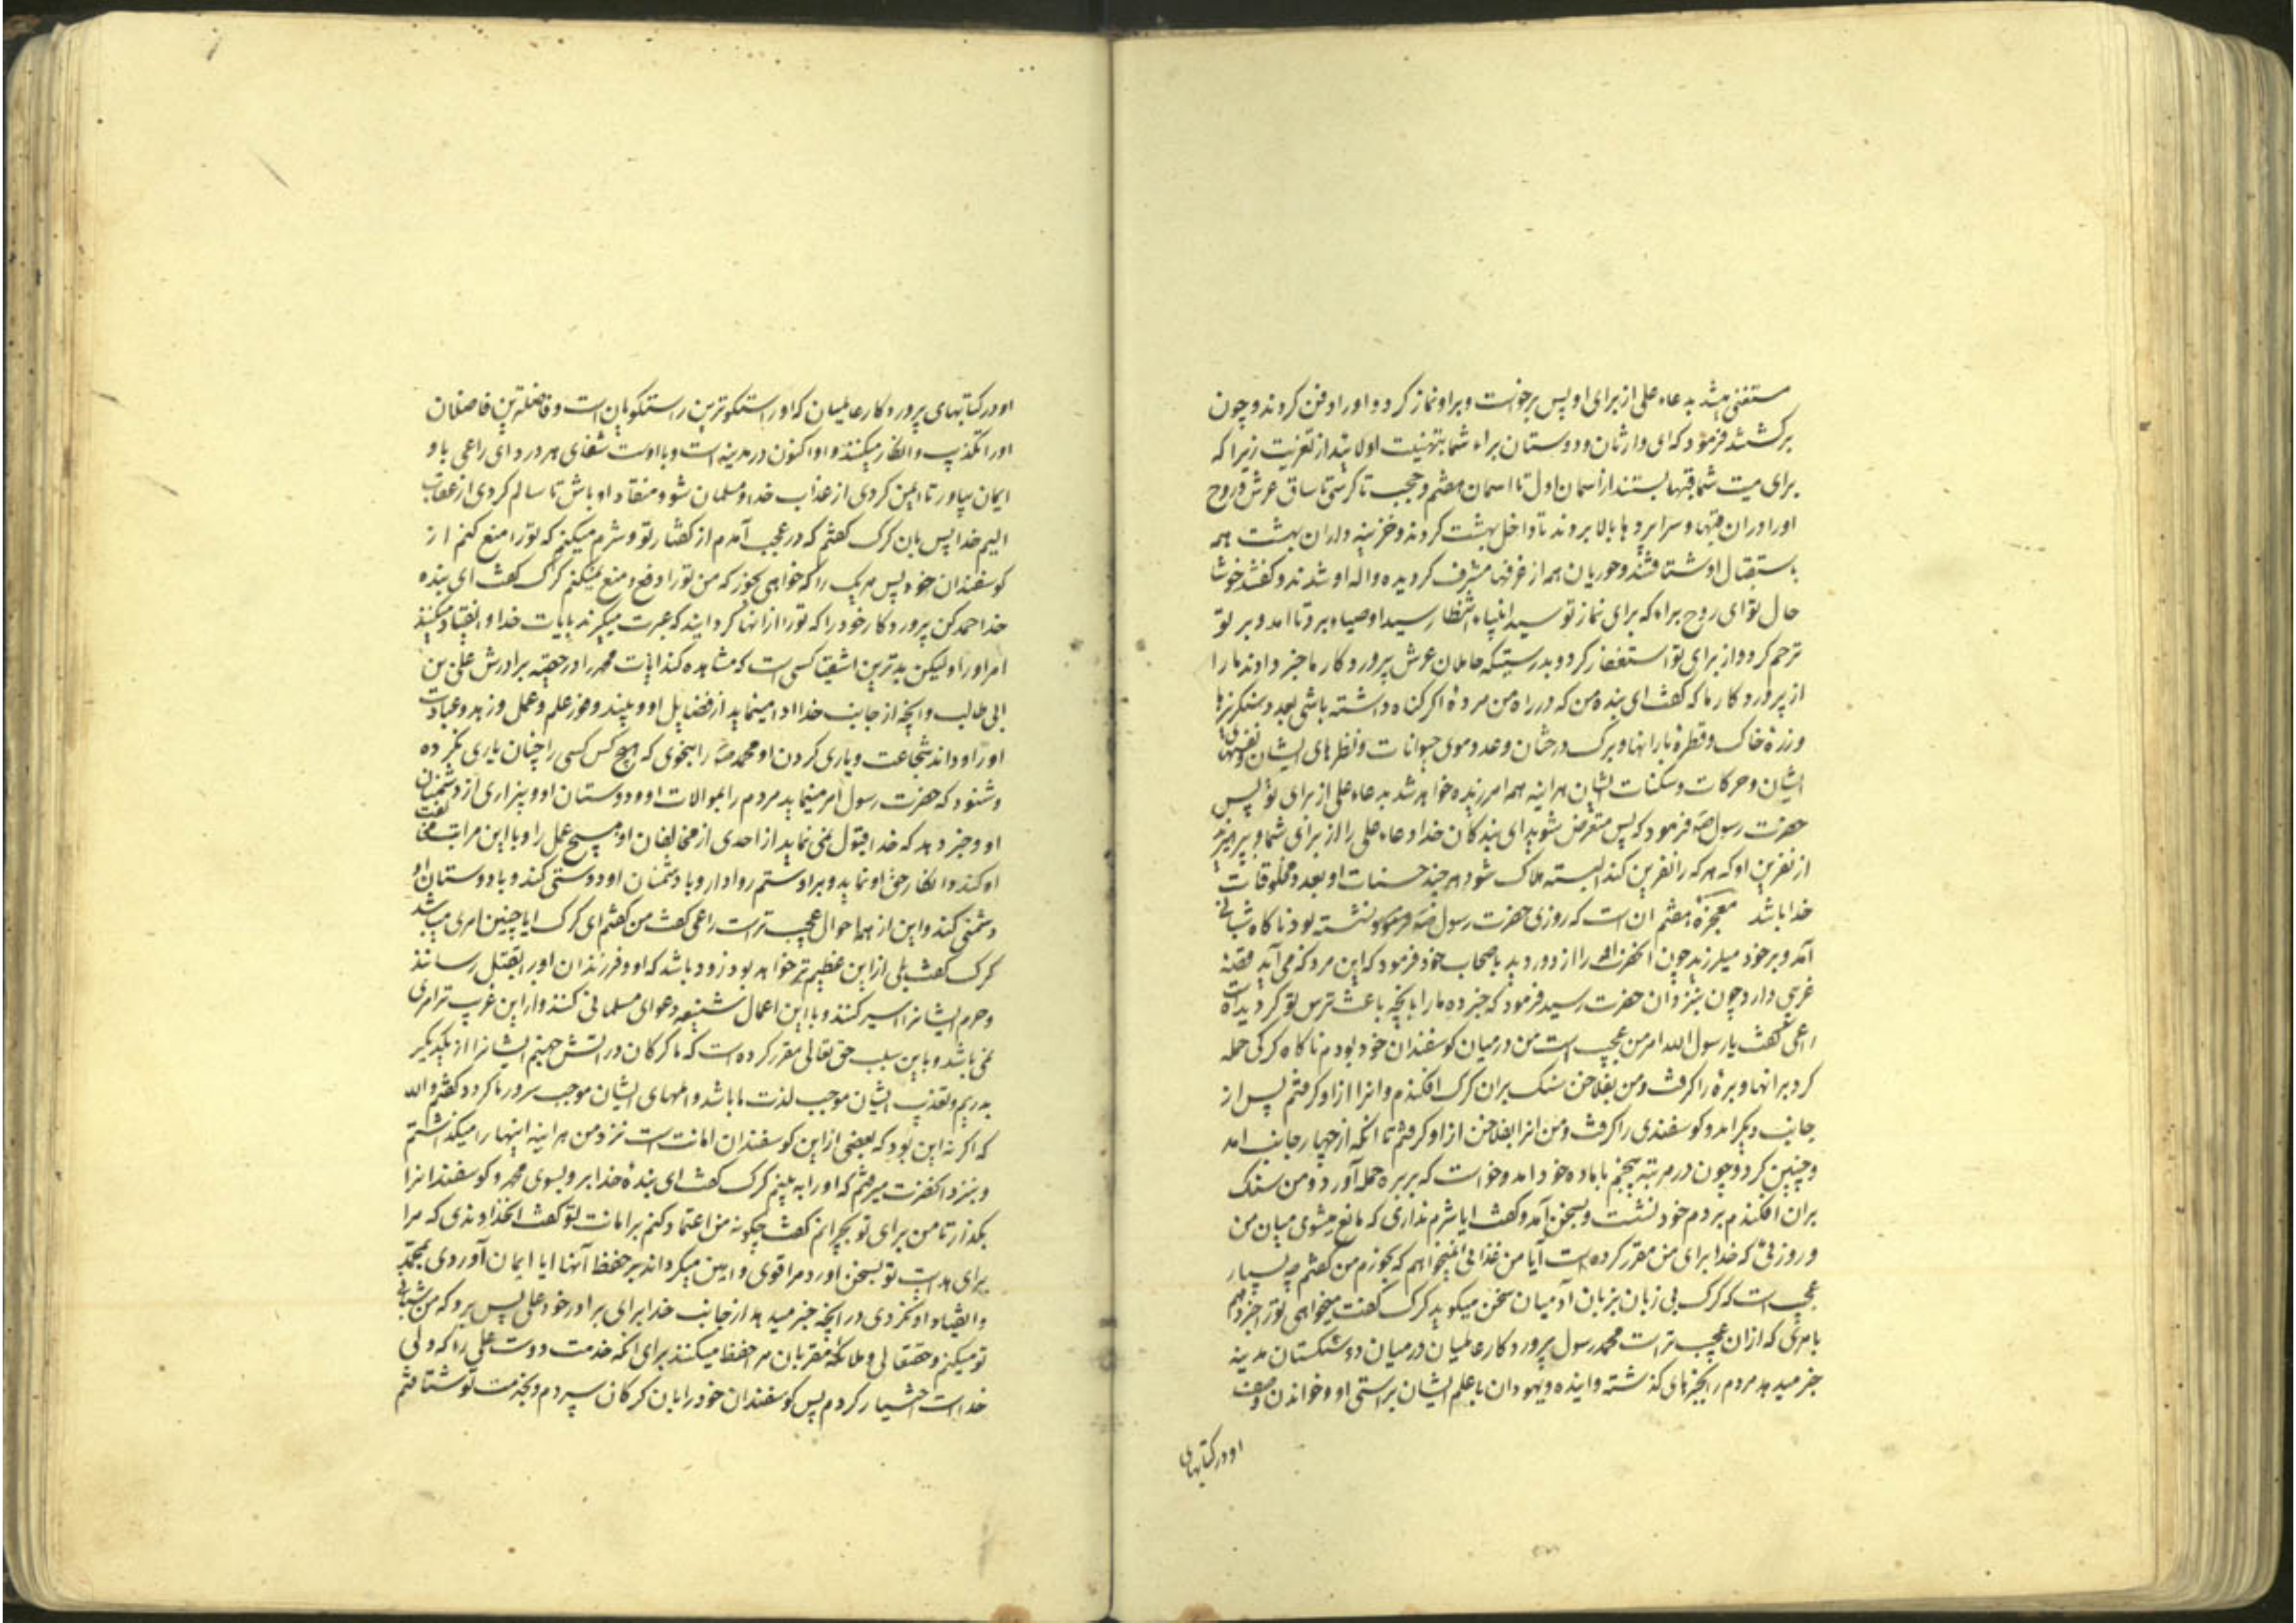 مستغنی باشد بدعاء علی از برای او پس برخواست و بر او نماز کرد و او را دفن کردند و چون
برگشتند فرمود که ای وارثان و دوستان براء شما بتهنیت اولایید از تعزیت زیرا که
برای میت شما قبتها بستند از اسمان اول تا اسمان هفتم و حجب تا کرسی تا ساق عرش و روح
او را در ان قبتها و سراپردها بالا بردند تا داخل بهشت کردند و خزینه داران بهشت همه
باستقبال او شتافتند و حوریان همه از غرفها مشرف کردیده واله او شدند و کفتند خوشا
حال تو ای روح براء که برای نماز تو سید انبیاء انتظار سید اوصیاء برد تا امد و بر تو
ترحم کرد و از برای تو استغفار کرد و بدرستیکه حاملان عرش پروردکار ما خبر دادند ما را
از پروردکار ما که کفت ای بنده من که در راه من مردۀ اکر کناه داشته باشی بعدد سنکریزها
و ذرۀ خاک و قطرۀ بارانها و برک درختان و عدد موی حیوانات و نظرهای ایشان و نفسهای
ایشان و حرکات و سکنات ایشان هراینه همه امرزیده خواهد شد بدعاء علی از برای تو پس
حضرت رسول ص فرمود که پس متعرض شوید ای بندکان خدا دعاء علی را از برای شما و بپرهیزید
از نفرین او که هر که را نفرین کند البسته هلاک شود هر چند حسنات او بعدد مخلوقات
خدا باشد معجزۀ هفتم ان است که روزی حضرت رسول ص نشسته بود ناکاه شبانی
آمد و بر خود میلرزید چون انحضرت او را از دور دید باصحاب خود فرمود که این مرد که می آید قصۀ
غریبی دارد چون بنزد ان حضرت رسید فرمود که خبر ده ما را بانچه باعث ترس تو کردیده است
راعی کفت یا رسول الله امر من عجیب است من در میان کوسفندان خود بودم ناکاه کرکی حمله
کرد بر انها و برۀ را کرفت و من بفلاخن سنک بر ان کرک افکندم و انرا از او کرفتم پس از
جانب دیکر امد و کوسفندی را کرفت و من انرا بفلاخن از او کرفتم تا انکه از چهار جانب امد
و چنین کرد و چون در مرتبه پنجم با ماده خود امد و خواست که بر بره حمله آورد و من سنک
بران افکندم بر دم خود نشست و بسخن آمد و کفت ایا شرم نداری که مانع میشوی میان من
و روزیی که خدا برای من مقرر کرده است آیا من غذایی نمیخواهم که بخورم من کفتم چه بسیار
عجیب است که کرک بی زبان بزبان آدمیان سخن میکوید کرک کفت میخواهی تو را خبر دهم
بامری که از ان عجیب تر است محمد رسول پروردکار عالمیان در میان دو سنکستان مدینه
خبر میدهد مردم را بخبرهای کذشته و اینده و یهودان با علم ایشان براستی او و خواندن وصف
او در کتابهای
او در کتابهای پروردکار عالمیان که او راستکوترین راستکویان است و فاضلترین فاضلان
او را تکذیب و انکار میکنند و او اکنون در مدینه است و با اوست شفای هر درد ای راعی باو
ایمان بیاور تا ایمن کردی از عذاب خدا و مسلمان شو و منقاد او باش تا سالم کردی از عقاب
الیم خدا پس بان کرک کفتم که در عجب آمدم از کفتار تو و شرم میکنم که تو را منع کنم از
کوسفندان خود پس هر یک را که خواهی بخور که من تو را دفع و منع نمیکنم کرک کفت ای بنده
خدا حمد کن پروردکار خود را که تو را از انها کردانید که عبرت میکیرند بایات خدا و انقیاد میکنند
امر او را و لیکن بدترین اشقیا کسی است که مشاهده کند ایات محمد را در حق برادرش علی بن
ابی طالب و انچه از جانب خدا ادا مینماید از فضایل او و بیند وفور علم و عمل و زهد و عبادت
او را و داند شجاعت و یاری کردن او محمد ص را بنحوی که هیچ کس کسی را چنان یاری نکرده
و شنود که حضرت رسول امر مینماید مردم را بموالات او و دوستان او و بیزاری از دشمنان
او و خبر دهد که خدا قبول نمی نماید از احدی از مخالفان او هیچ عمل را و با این مراتب مخالفت
او کند و انکار حق او نماید و بر او ستم روا دارد و با دشمنان او دوستی کند و با دوستان او
دشمنی کند و این از همه احوال عجیب تر است راعی کفت من کفتم ای کرک ایا چنین امری میباشد
کرک کفت بلی از این عظیم تر خواهد بود زود باشد که او و فرزندان او را بقتل رسانند
و حرم ایشانرا اسیر کنند و با این اعمال شنیعه دعوای مسلمانی کنند و از این غریب تر امری
نمی باشد و باین سبب حق تعالی مقرر کرده است که ما کرکان در اتش جهنم ایشانرا از یکدیکر
بدریم و تعذیب ایشان موجب لذت ما باشد و المهای ایشان موجب سرور ما کردد کفتم والله
که اکر نه این بود که بعضی از این کوسفندان امانت است نزد من هر اینه اینها را میکذاشتم
و بنزد انحضرت میرفتم که او را به بینم کرک کفت ای بندۀ خدا برو بسوی محمد و کوسفندانرا
بکذار تا من برای تو بچرانم کفت چکونه من اعتماد کنم بر امانت تو کفت انخداوندی که مرا
برای هدایت تو بسخن اورد مرا قوی و امین میکرداند بر حفظ آنها ایا ایمان آوردی بمحمد
و انقیاد او نکردی در انچه خبر میدهد از جانب خدا برای برادر خود علی پس برو که من شبانی
تو میکنم و حقتعالی و ملائکه مقربان مرا حفظ میکنند برای انکه خدمت دوست علی را که ولی
خداست اختیار کردم پس کوسفندان خود را بان کرکان سپردم و بخدمت تو شتافتم